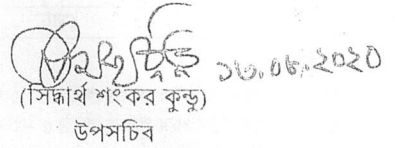 ১৬.০৮.২০২০
(সিদ্ধার্থ শংকর কুন্ডু)
উপসচিব